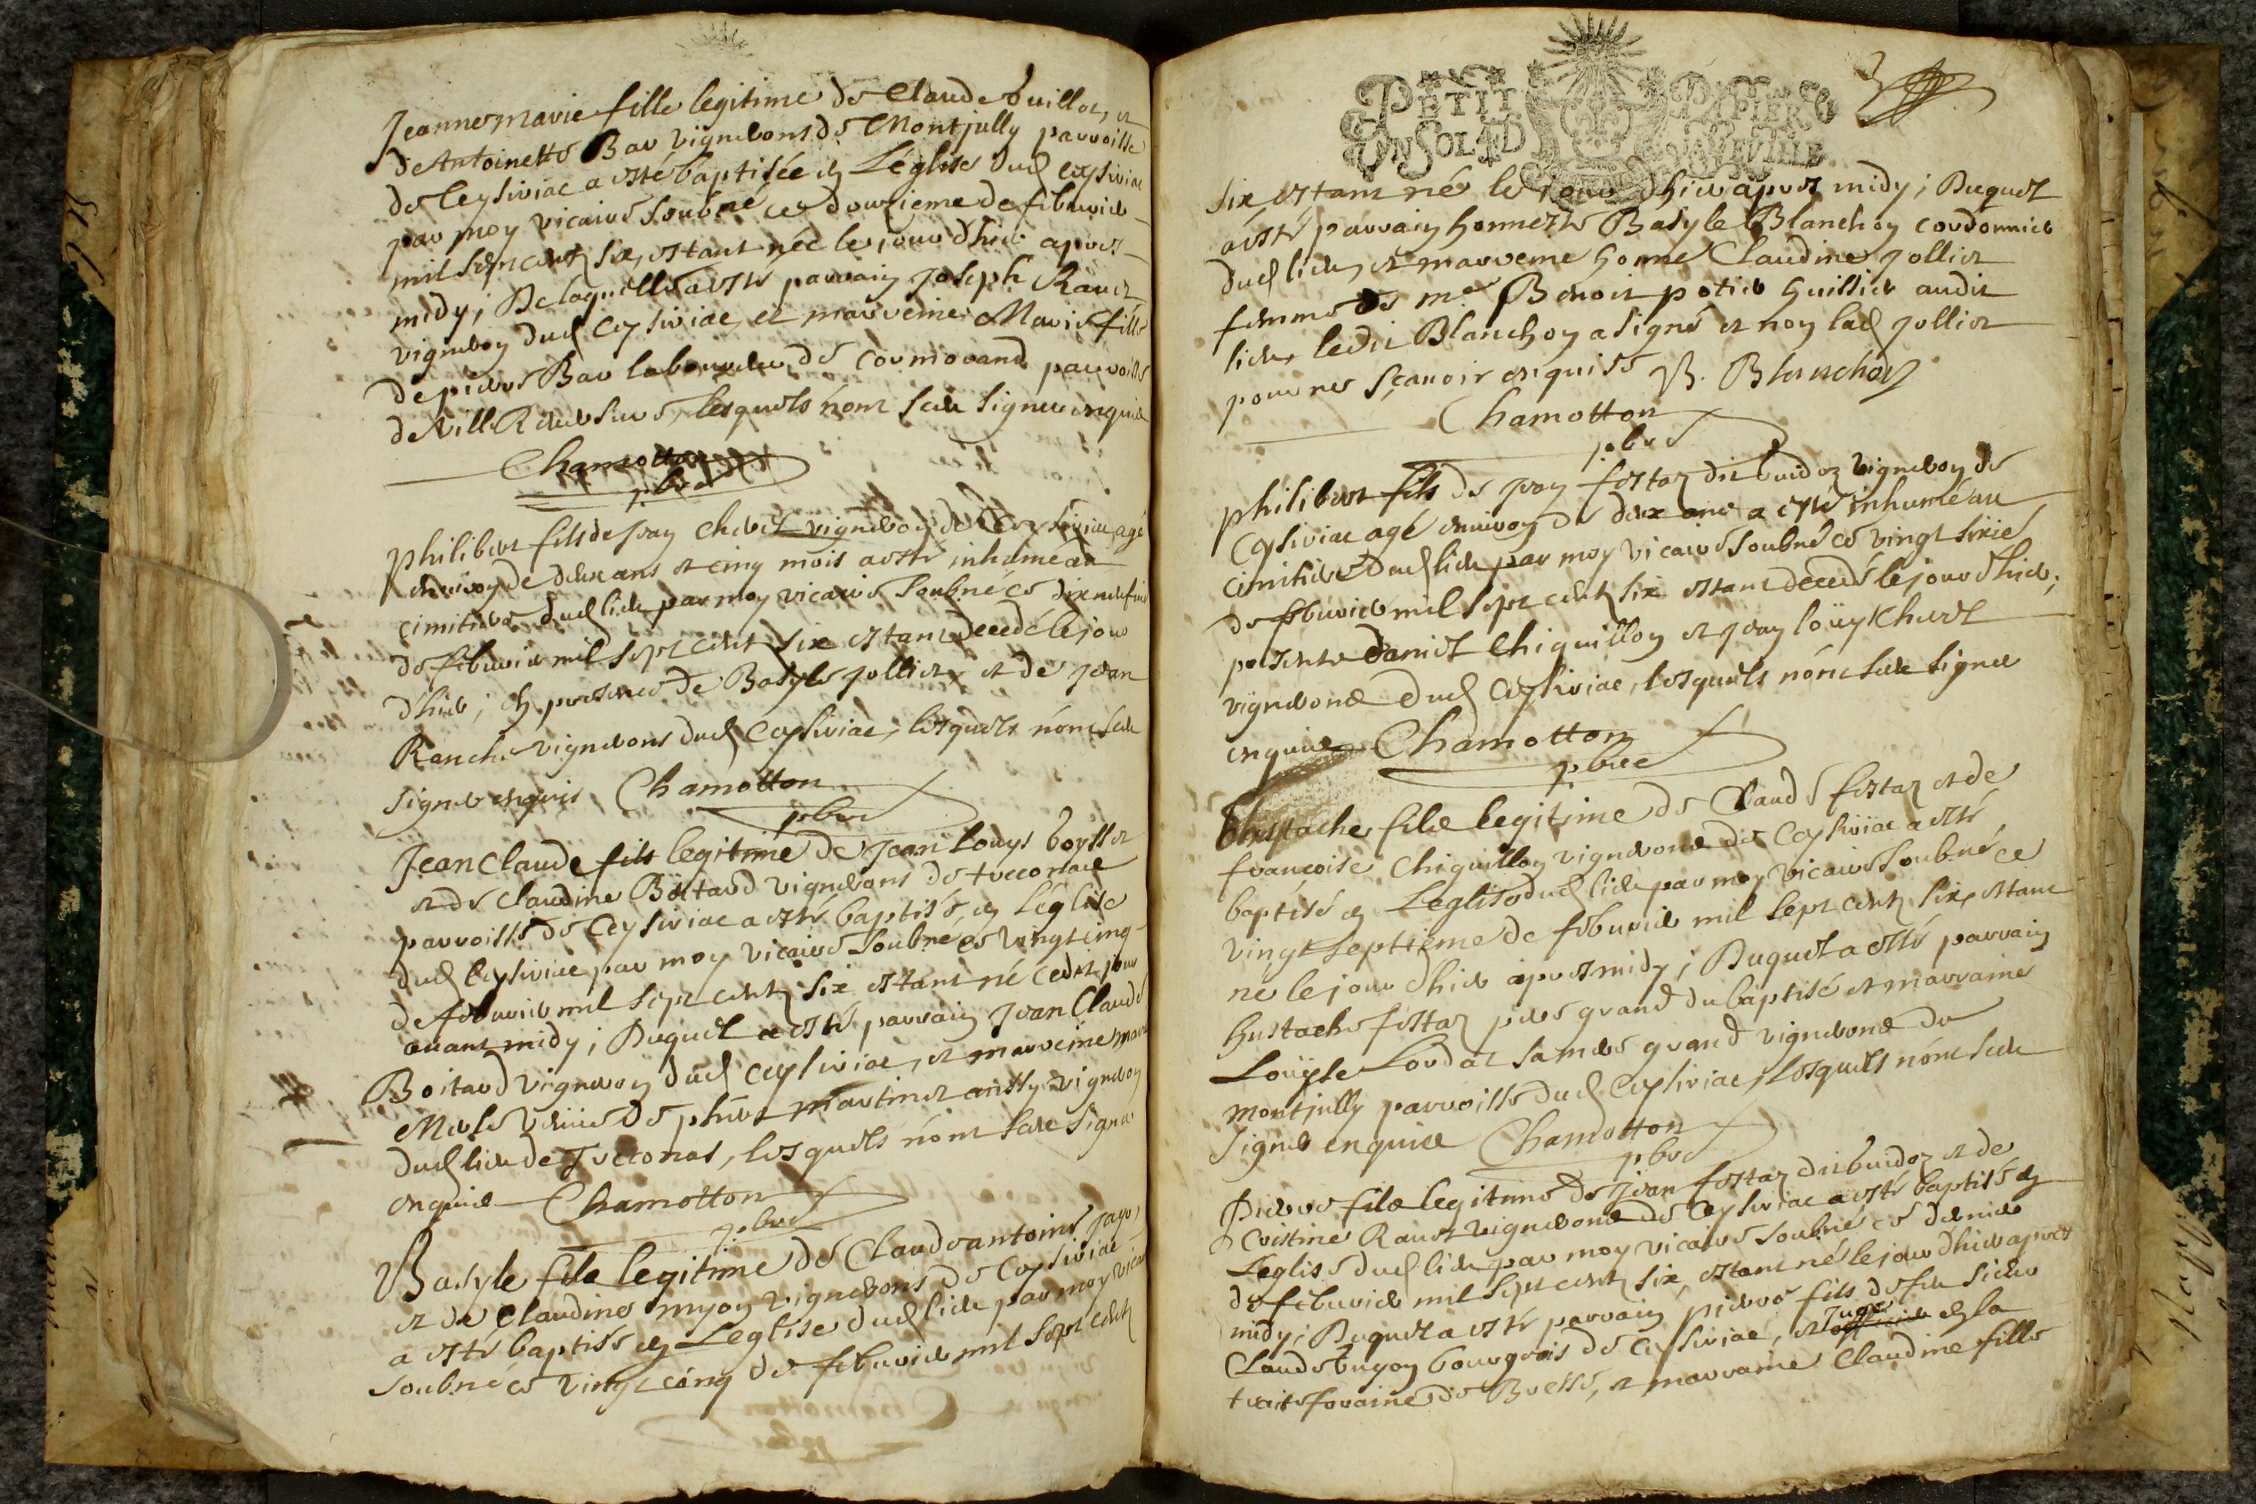 Jeanne marie fille legitime de Claude buillot, et
de Antoinette Bar vignerons de Montjully parroisse
de Ceysiriac a esté baptisée en L'eglise dud ceysiriac
par moy vicaire soubné ce douzieme de febvrier
mil sept cent six, estant née le jour d'hier apres
midy; De laquelle a esté parrain Joseph Ravet
vigneron dud Ceysiriac, et marreine Marie fille
de pierre Bar laboureur de Cormorand parroisse
de Ville Reversure, lesquels n'ont sceu signer enquis
Chamotton
pbre
Philibert fils de Jean vigneron de Ceysiriac, agé
environ de deux ans et cinq mois a esté inhumé au
cimitiere dud lieu par moy vicaire soubné ce dixneufvie
de febvrier mil sept cent six estant decedé le jour
d'hier; en presence de Basyle Jolliet, et de Jean
Ranche vignerons dud Ceysiriac, lesquels n'ont sceu
signer enquis Chamotton
pbre
Jean Claude fils legitime de Jean Louys
et de Claudine Boitard vignerons de treconas
parroisse de Ceysiriac a esté baptisé, en L'eglise
dud Ceysiriac par moy vicaire soubné ce vingt cinq
de febvrier mil sept cent six estant né cedit jour
avant midy; Duquel a esté parrain Jean Claude
Boitard vigneron dud ceysiriac, et marreine marie
Merle veuve de phibert martinet aussy vigneron
dud lieu de Treconas, lesquels n'ont sceu signer
enquis Chamotton
pbre
Basyle fils legitime de Claude antoine
et de Claudine myon vignerons de Ceysiriac
a esté baptisé en L'eglise dud lieu par moy vicaire
soubné ce vingt cinq de febvrier mil sept cent
PETIT PAPIER
UN SOL 4D LA FEUILLE
3
six, estant né le jour d'hier apres midy; Duquel
a esté parrain honneste Basyle Blanchon cordonnier
dud lieu, et marreine honne Claudine Jolliet
femme de me Benoit potier huissier audit
lieu, ledit Blanchon a signé et non lad Jolliet
pour ne sçavoir enquise B. Blanchon
Chamotton
pbre
Philibert fils de Jean fostaz dit buidoz vigneron de
Ceysiriac agé environ de deux ans a esté inhumé au
cimitiere dud lieu par moy vicaire soubné ce vingt sixie
de febvrier mil sept cent six estant decedé le jour d'hier;
presents daniel Chiquillon et Jean loüys
vignerons dud Ceysiriac, lesquels n'ont sceu signer
enquis Chamotton
pbre
Eustache fils legitime de Claude fostaz et de
françoise Chiquillon vignerons de Ceysiriac a esté
baptisé en L'eglise dud lieu par moy vicaire soubné ce
vingt septieme de febvrier mil sept cent six, estant
né le jour d'hier apres midy; Duquel a esté parrain
Eustache fostaz pere grand du baptisé et marraine
Louyse Lordat sa mere grand vignerons de
montjully parroisse dud Ceysiriac, lesquels n'ont sceu
signer enquis Chamotton
pbre
Pierre fils legitime de Jean fostaz dit buidoz et de
Cristine Ravet vignerons de Ceysiriac a esté baptisé en
L'eglise dud lieu par moy vicaire soubné ce dernier
de febvrier mil sept cent six, estant né le jour d'hier apres
midy; Duquel a esté parrain pierre fils de feu sieur
Claude bugon bourgeois de Ceysiriac, et Juge en la
traite foraine de Bresse, et marraine Claudine fille